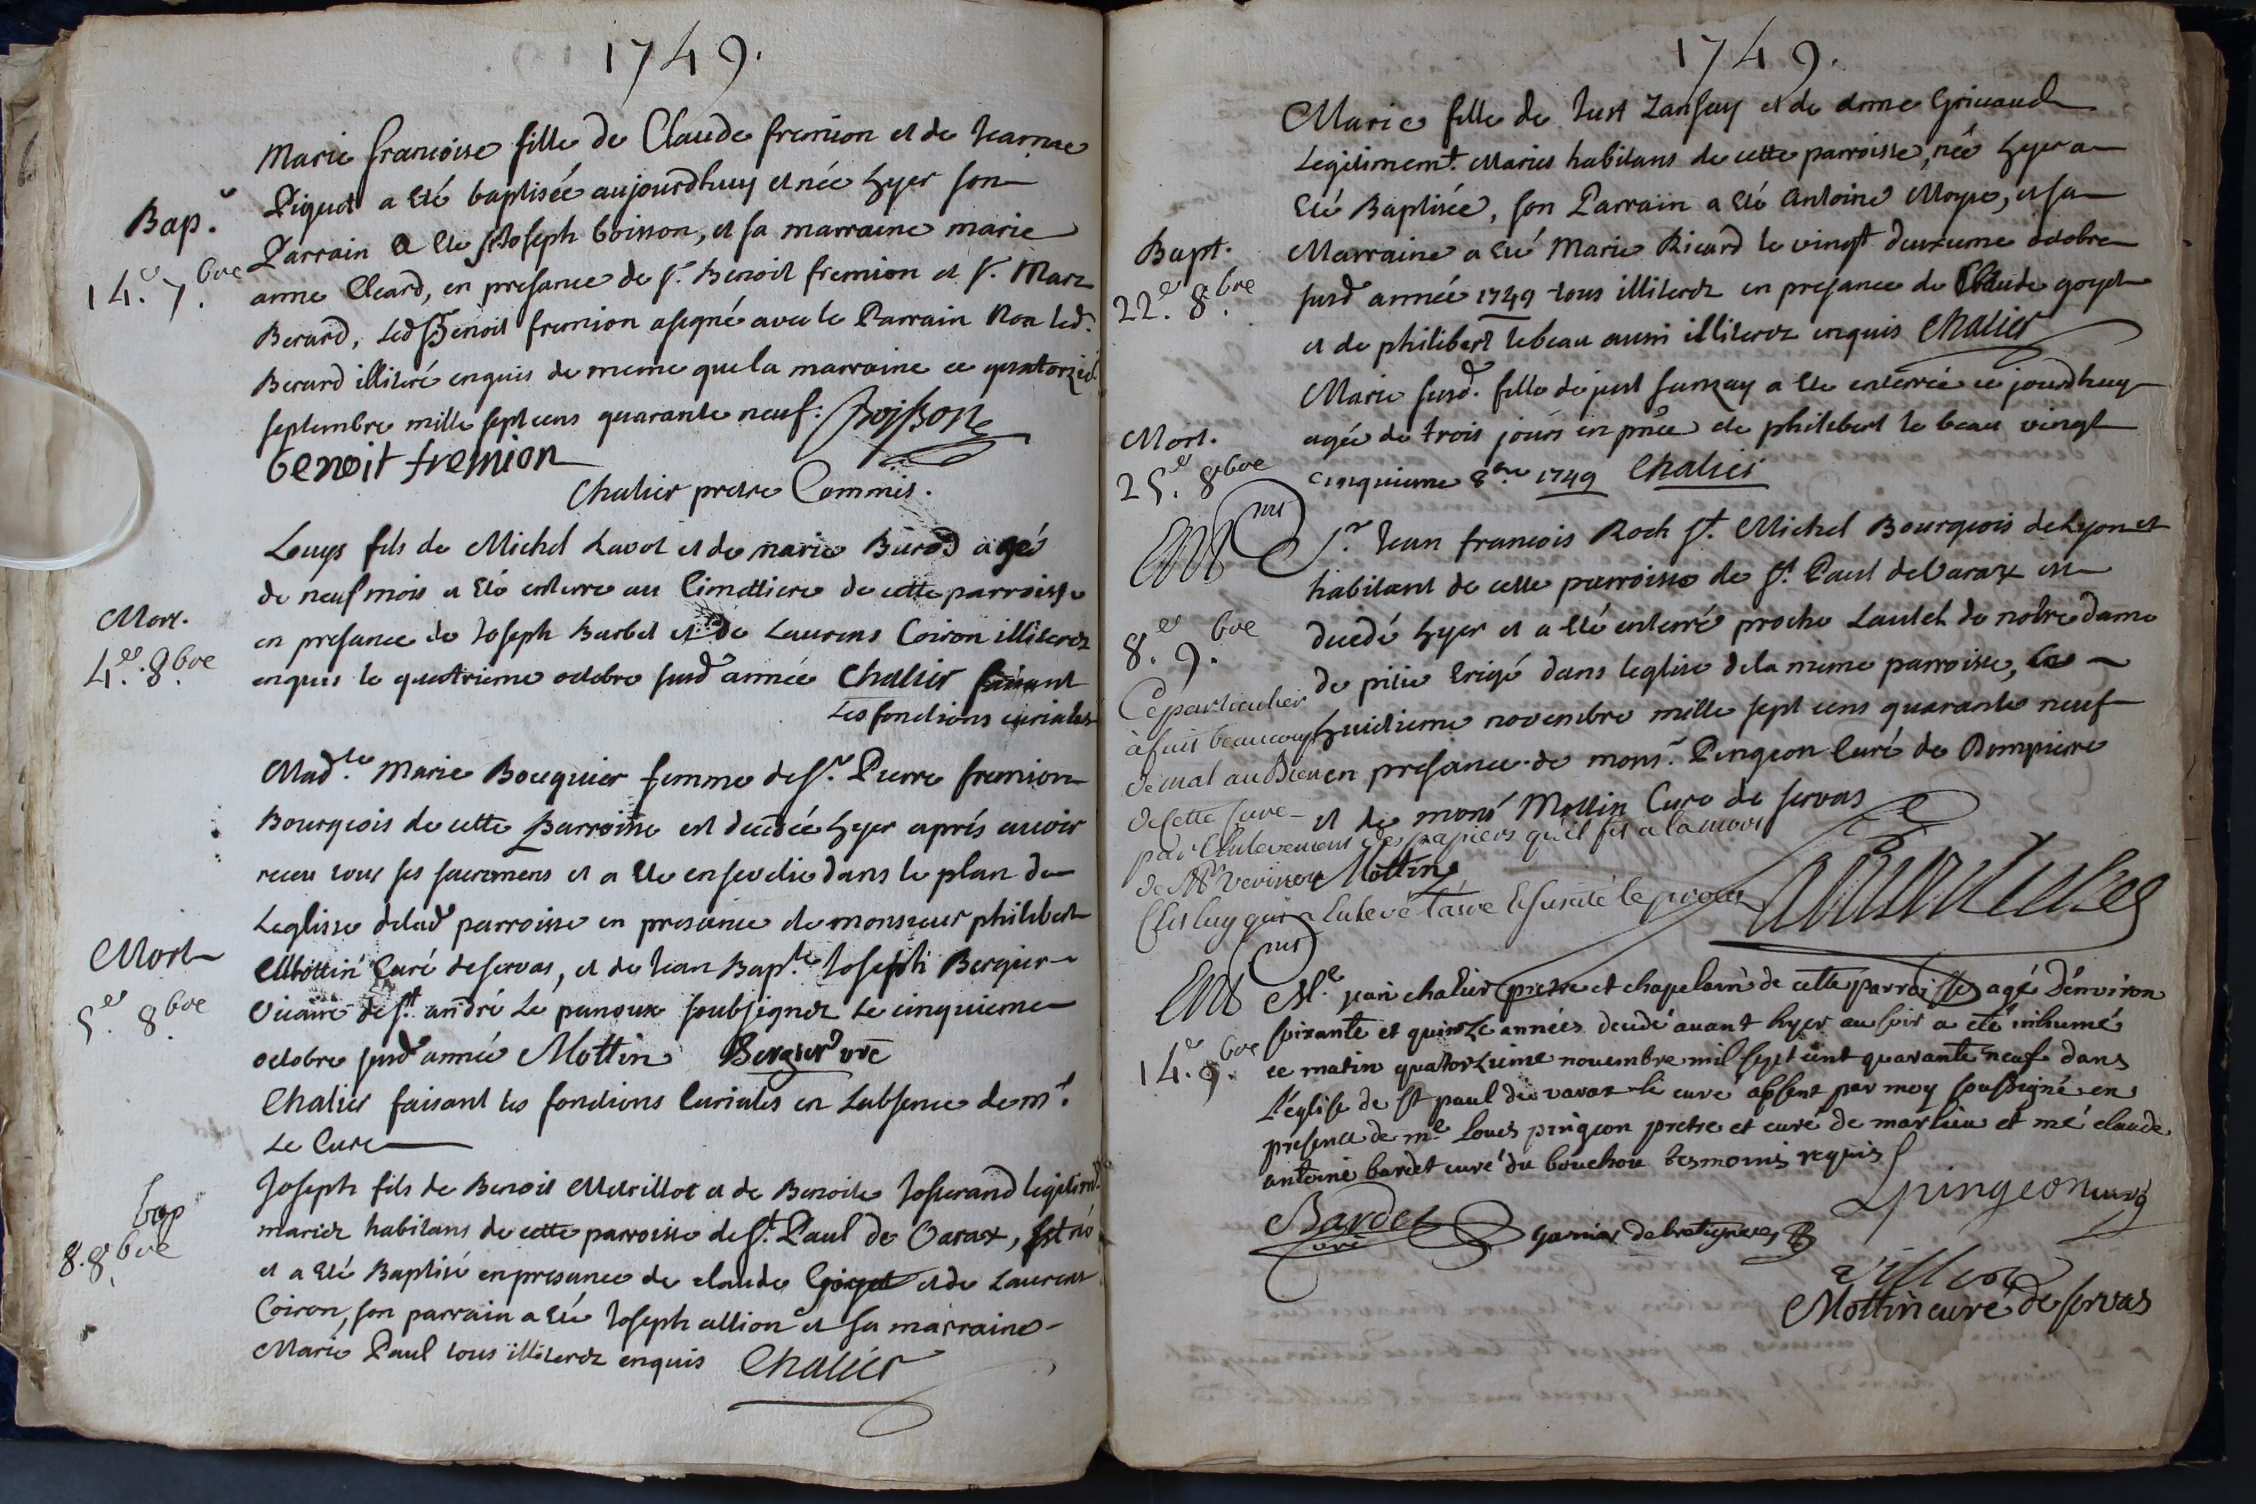 1749.
Marie francoise fille de Claude fremion et de Jeanne
Piquet a eté baptisée aujourdhuy et née hyer son
Bap.e
Parrain a ete sr Joseph boisson, et sa marraine marie
14.e 7.bre
anne Cleard, en presance de sr. Benoit fremion et sr. Marc
Berard, led Benoit fremion a signé avec le Parrain Non led.
Berard illiteré enquis de meme que la marraine ce quatorzié.
septembre mille sept cens quarante neuf: Boisson
benoit fremion
Chalier pretre Commis.
Louys fils de Michel Lavot et de marie Burod agé
de neuf mois a eté enterre au Cimettiere de cette parroisse
Mort.
en presance de Joseph Barbet et de Laurens Coiron illiterez
4.e 8.bre
enquis le quatrieme octobre susd année Chalier faisant
Les fonctions curiales
Mad.le Marie Bouquier femme de sr. Pierre fremion
Bourgeois de cette Parroisse est decedée hyer aprés avoir
receu tous ses sacremens et a ete ensevelie dans le plan de
Leglisse delad parroisse en presance de monsieur philibert
Mort
Mottin Curé de servas, et de Jean Bap.te Joseph Bergier
5.e 8bre
Vicaire de st. andré Le panoux soubsignez Le cinquieme
octobre susd année Mottin Bergier vre
Chalier faisant les fonctions Curiales en Labsence de mr.
Le Cure
Joseph fils de Benoit Metrillot et de Benoite Josserand legitimt.
bap
mariez habitans de cette parroisse de st. Paul de Varax, est né
8. 8bre
et a eté Baptisé en presance de claude Goyet et de Laurent
Coiron, son parrain a eté Joseph allion et sa marraine
Marie Paul tous illiterez enquis Chalier
1749.
Marie fille de Just Zansay et de anne Grivaud
Legitimemt. Maries habitans de cette parroisse, née hyer a
Eté Baptisée, son Parrain a eté Antoine Moyse, et sa
Bapt.
Marraine a eté Marie Ricard le vingt deuxieme octobre
22.e 8.bre
susd année 1749 tous illiterez en presance de Claude goyet
et de philibert lebeau aussi illiterez enquis Chalier
Marie susd. fille de just sanzay a ete enterrée ce jourdhuy
Mort.
agée de trois jours en pnce de philibert le beau vingt
25.e 8bre
cinquieme 8bre 1749 Chalier
Ent
Sr. Jean francois Roch st. Michel Bourgeois de Lyon et
habitant de cette parroisse de st. Paul de Varax est
8.e 9.bre
decedé hyer et a eté enterré proche Lautel de notre dame
de pitie erigé dans leglise de la meme parroisse, le
Ce particulier
huitieme novembre mille sept cens quarante neuf
à fait beaucoup
en presance de monsr. Pingeon Curé de Dompierre
de mal au Bien
et de monsr Mottin Cure de servas
de cette Cure
par l'enlevement des papiers qu'il fit a la mort
de Mr
Mottin
C'est luy qui a Enlevé
Ent
Me. jean chalier pretre et chapelain de cette parroisse agé d'environ
soixante et quinze années decedé avant hyer au soir a eté inhumé
14.e 9.bre
ce matin quatorzieme novembre mil sept cent quarante neuf dans
L'église de st paul de varax le curé absent par moy soussigné en
presence de me Louis pingeon pretre et curé de marlieu et me claude
antoine bardet curé du bouchou tesmoins requis
Lpingeon curé
Bardet
curé
garnier debratignere
Mottin curé de servas